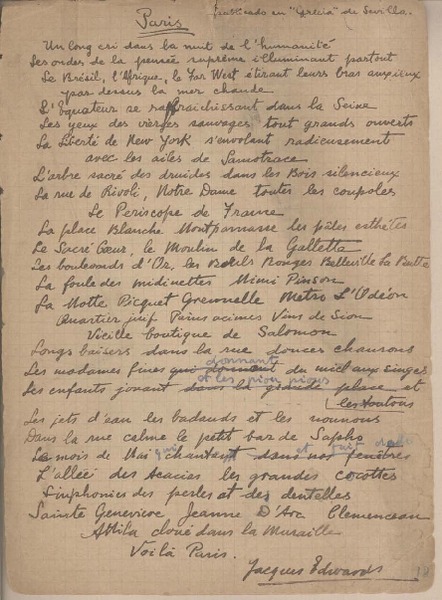 Paris
publicado en "Grecia" de Sevilla.
Un long cri dans la nuit de l'humanité
Les ondes de la pensée suprême illuminant partout
Le Brésil, l'Afrique, le Far West étirant leurs bras anxieux
par dessus la mer chaude
L'Équateur se rafraichissant dans la Seine
Les yeux des vierges sauvages tout grands ouverts
La Liberté de New York s'envolant radieusement
avec les ailes de Samotrace
L'arbre sacré des druides dans les Bois silencieux
La rue de Rivoli, Notre Dame toutes les coupoles
Le Periscope de France
La place Blanche Montparnasse les pâles esthètes
Le Sacré Cœur, le Moulin de la Galletta
Les boulevards d'Or, les Bals Rouges Belleville La Butte
La foule des midinettes Mimi Pinson
La Motte Picquet Grennelle Metro L'Odéon
Quartier juif Pains acimes Vins de Sion
Vieille boutique de Salomon
Longs baisers dans la rue douces chansons
donnant
Les madames fines qui donnent du miel aux singes
et les piou pious
Les enfants jouant dans la grande place et
les toutous
Les jets d'eau les badauds et les nounous
Dans la rue calme le petit bar de Sapho
Le mois de Mai chantant dans nos fenêtres
L'alleé des Acacias les grandes cocottes
Simphonies des perles et des dentelles
Sainte Genevieve Jeanne D'Arc Clemenceau
Attila cloué dans la Muraille
Voilà Paris.
Jacques Edwards